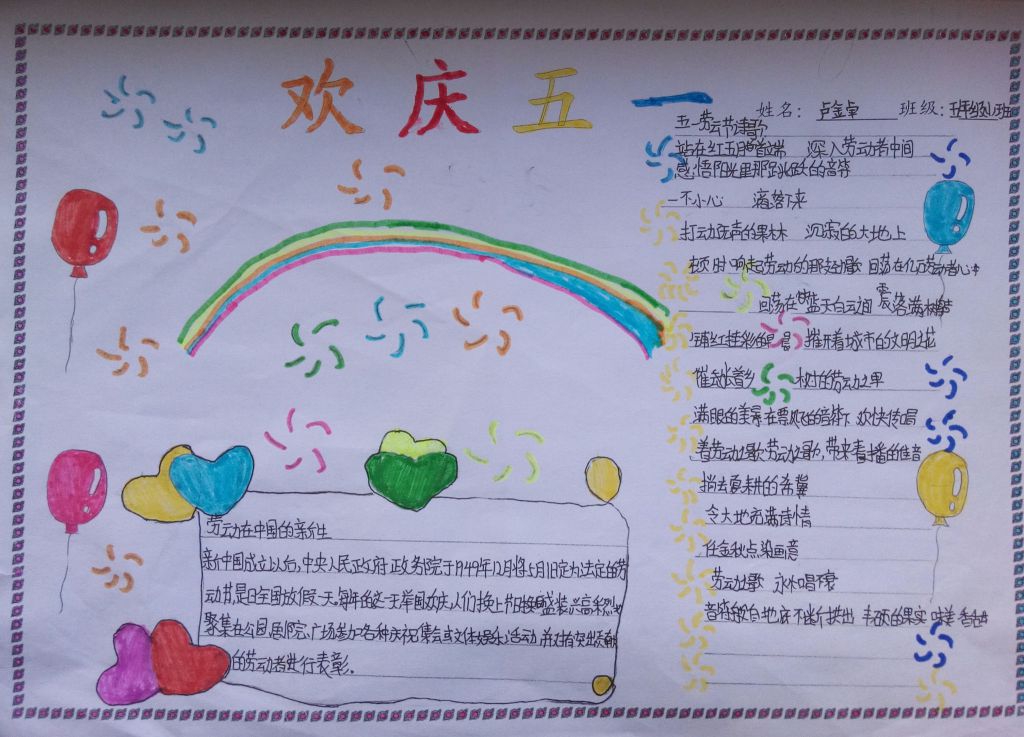 欢庆五一
姓名：卢金卓 班级：五年级(2)班
五一劳云节津歌
站在红五月的首端 深入劳动者中间
感悟阳光里那跳跃的音符
一不小心 滴落下来
打动 的果林 沉寂的大地上
顿时响起劳动的那支歌 回荡在亿万劳动者心中
回荡在 蓝天白云间 震落满树
铺红挂彩的 推开着城市的文明之城
催 着乡 村的劳动之果
满眼的美景在票 的音符下 欢快传唱
着劳动之歌劳动之歌，带来春播的佳音
捎去夏耕的希冀
令大地充满诗情
任金秋点染画意
劳动之歌 永不唱
音符般自地底不断拱出 丰硕的果实 味美香甜
劳动在中国的新生
新中国成立以后，中央人民政府政务院于1949年12月将5月1日定为法定的劳
动节，是日全国放假一天。每年的这一天举国欢庆，人们换上节日 盛装兴高采烈地
聚集在公园、剧院、广场参加各种庆祝集会或文体娱乐活动，并对有突出贡献
的劳动者进行表彰。